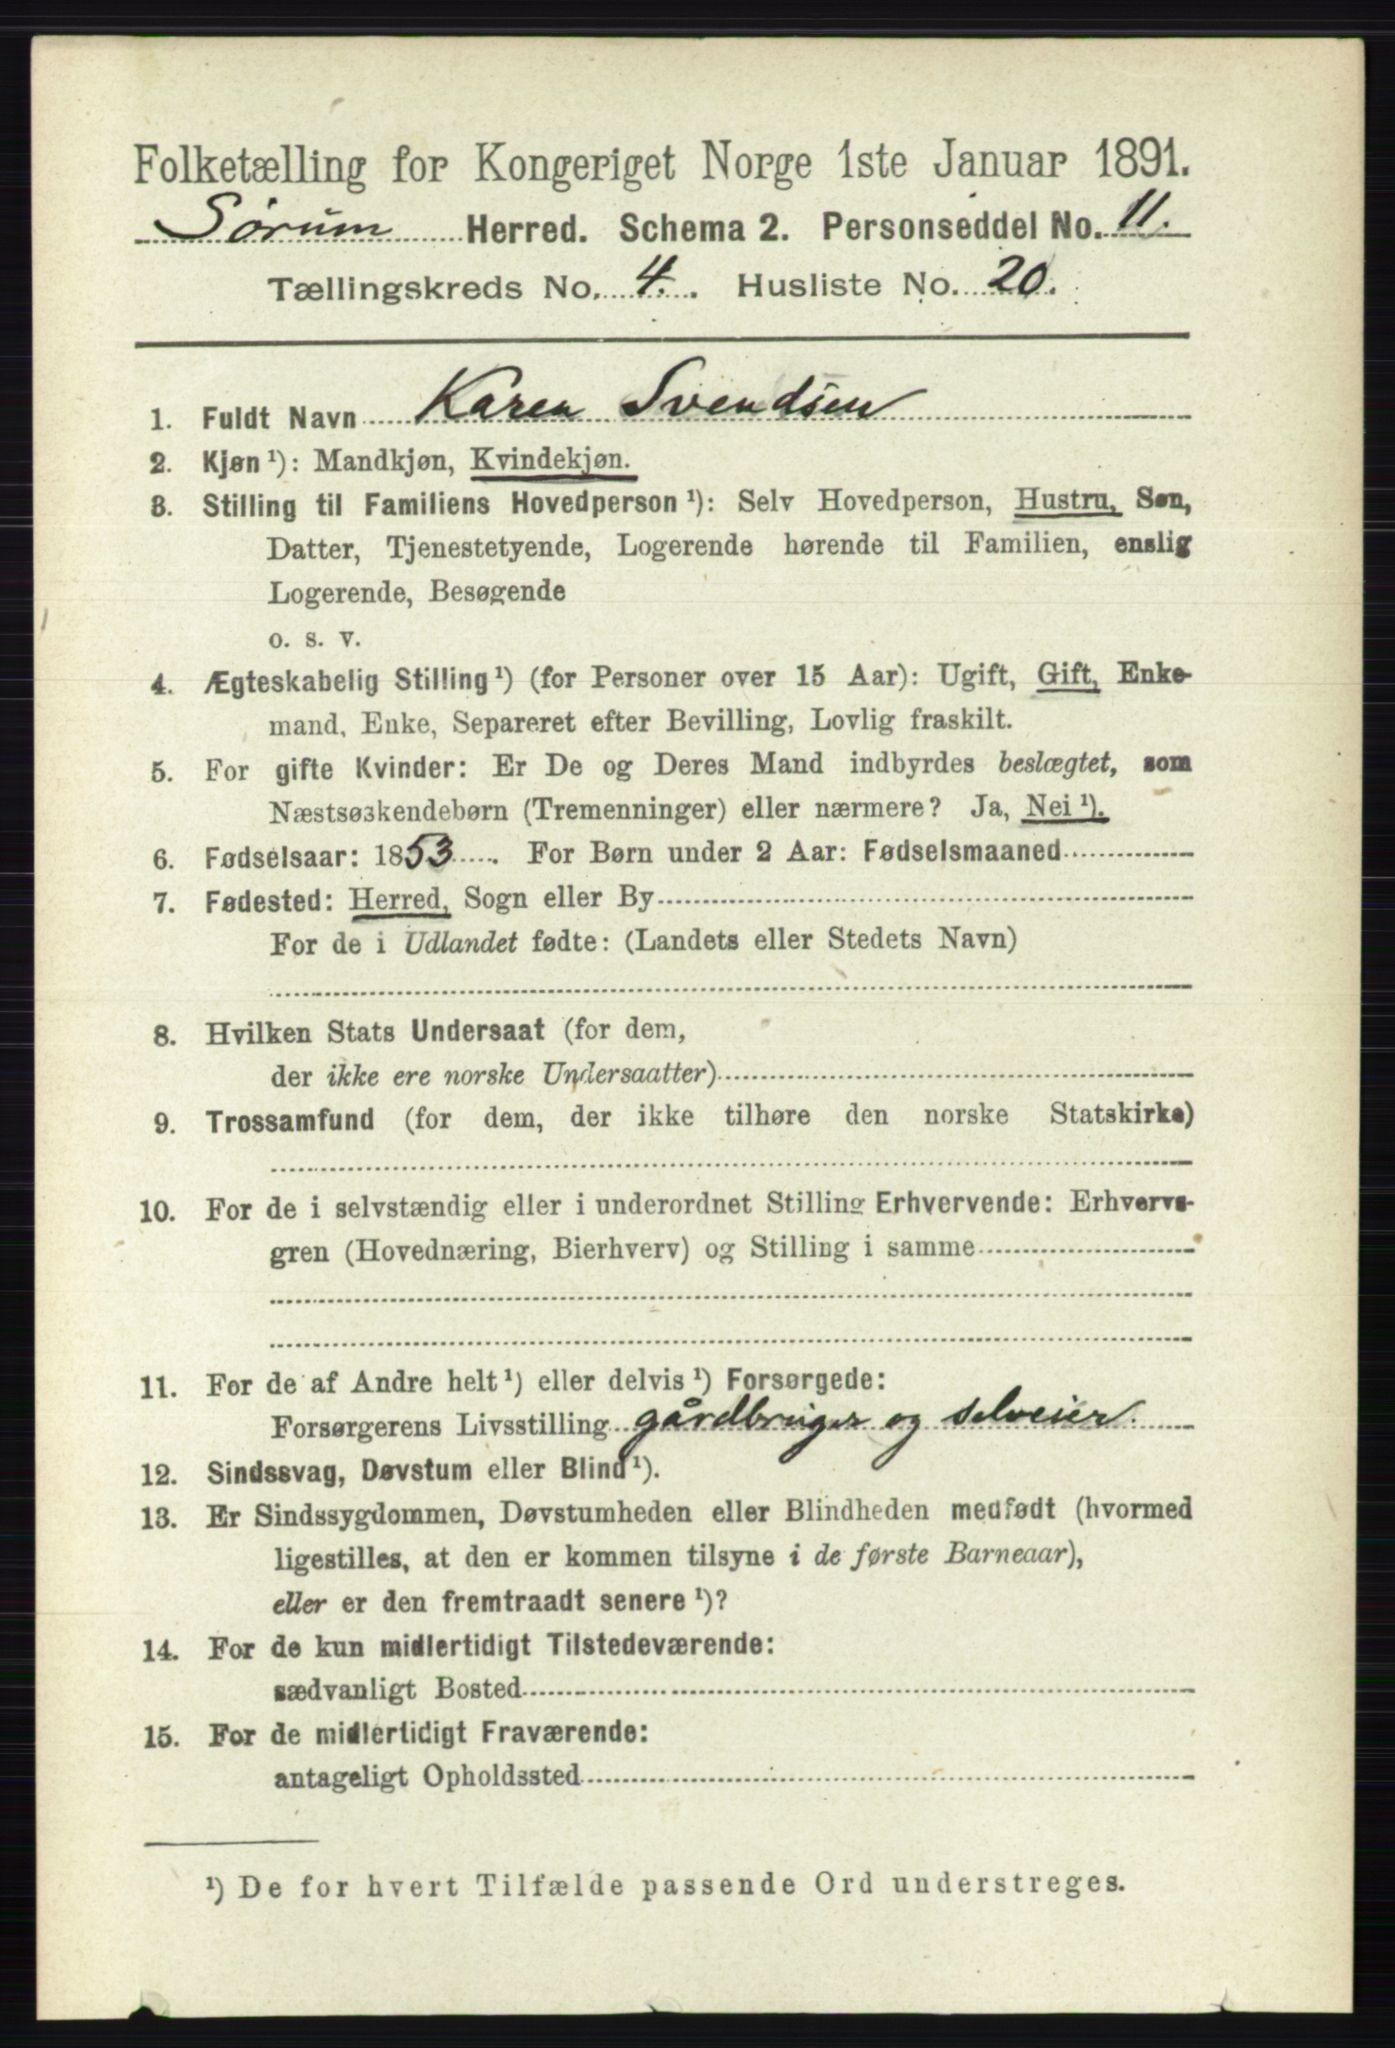 Folketælling for Kongeriget Norge 1ste Januar 1891.
Sørum Herred. Schema 2. Personseddel No. 11.
Tællingskreds No. 4. Husliste No. 20.
1. Fuldt Navn Karen Svendsen
2. Kjøn ¹): Mandkjøn, Kvindekjøn.
3. Stilling til Familiens Hovedperson ¹): Selv Hovedperson, Hustru, Søn,
Datter, Tjenestetyende, Logerende hørende til Familien, enslig
Logerende, Besøgende
o. s. v.
4. Ægteskabelig Stilling ¹) (for Personer over 15 Aar): Ugift, Gift, Enke-
mand, Enke, Separeret efter Bevilling, Lovlig fraskilt.
5. For gifte Kvinder: Er De og Deres Mand indbyrdes beslægtet, som
Næstsøskendebørn (Tremenninger) eller nærmere? Ja, Nei ¹).
6. Fødselsaar: 1853. For Børn under 2 Aar: Fødselsmaaned
7. Fødested: Herred, Sogn eller By
For de i Udlandet fødte: (Landets eller Stedets Navn)
8. Hvilken Stats Undersaat (for dem,
der ikke ere norske Undersaatter)
9. Trossamfund (for dem, der ikke tilhøre den norske Statskirke)
10. For de i selvstændig eller i underordnet Stilling Erhvervende: Erhvervs-
gren (Hovednæring, Bierhverv) og Stilling i samme
11. For de af Andre helt ¹) eller delvis ¹) Forsørgede:
Forsørgerens Livsstilling gårdbruger og selveier.
12. Sindssvag, Døvstum eller Blind ¹).
13. Er Sindssygdommen, Døvstumheden eller Blindheden medfødt (hvormed
ligestilles, at den er kommen tilsyne i de første Barneaar),
eller er den fremtraadt senere ¹)?
14. For de kun midlertidigt Tilstedeværende:
sædvanligt Bosted
15. For de midlertidigt Fraværende:
antageligt Opholdssted
¹) De for hvert Tilfælde passende Ord understreges.